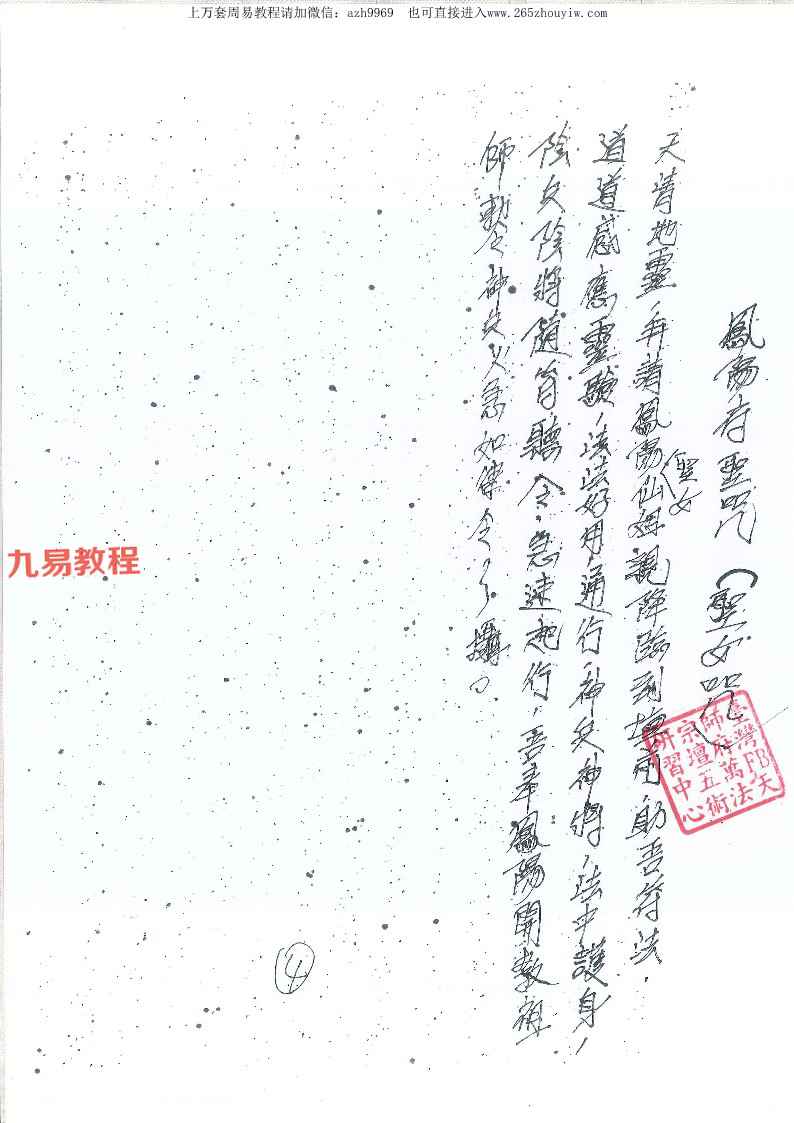 上万套周易教程请加微信：azh9969　也可直接进入www.265zhouyiw.com
鳳陽府聖咒（聖女咒）
天清地靈，再請鳳陽仙姐親降臨到壇前，助吾符法．
聖女
道道感應靈驗，法法好用通行，神兵神將，法中護身，
陰兵陰將隨肖聽令，急速起行，吾奉鳳陽開教祖
師勅令神兵火急如律令
九易教程
臺灣FB天
師府萬法
宗壇五術
研習中心
4